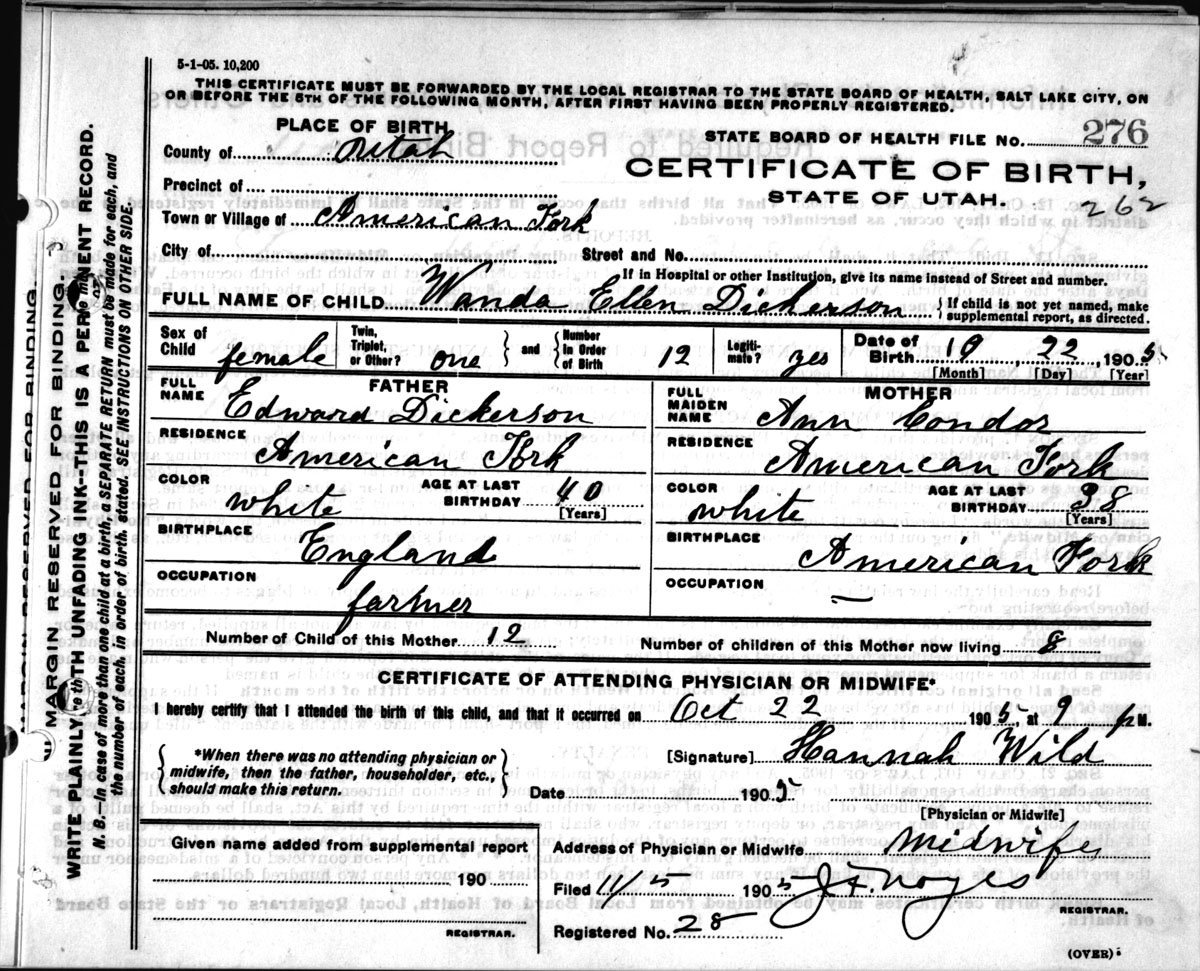 5-1-05. 10,200
THIS CERTIFICATE MUST BE FORWARDED BY THE LOCAL REGISTRAR TO THE STATE BOARD OF HEALTH, SALT LAKE CITY, ON
OR BEFORE THE 5TH OF THE FOLLOWING MONTH, AFTER FIRST HAVING BEEN PROPERLY REGISTERED.
PLACE OF BIRTH
STATE BOARD OF HEALTH FILE NO. 276
County of Utah
CERTIFICATE OF BIRTH,
Precinct of
STATE OF UTAH.
262
Town or Village of American Fork
City of Street and No.
If in Hospital or other Institution, give its name instead of Street and number.
FULL NAME OF CHILD Wanda Ellen Dickerson { If child is not yet named, make supplemental report, as directed.
Sex of Child female Twin, Triplet, or Other? one } and { Number in Order of Birth 12 Legiti-mate? yes Date of Birth 10 22 1905
[Month] [Day] [Year]
FATHER
FULL NAME Edward Dickerson
RESIDENCE
American Fork
COLOR white AGE AT LAST BIRTHDAY 40
[Years]
BIRTHPLACE
England
OCCUPATION
farmer
MOTHER
FULL MAIDEN NAME Ann Condor
RESIDENCE
American Fork
COLOR white AGE AT LAST BIRTHDAY 38
[Years]
BIRTHPLACE
American Fork
OCCUPATION
—
Number of Child of this Mother 12 Number of children of this Mother now living 8
CERTIFICATE OF ATTENDING PHYSICIAN OR MIDWIFE*
I hereby certify that I attended the birth of this child, and that it occurred on Oct 22 1905, at 9 P M.
{ *When there was no attending physician or midwife, then the father, householder, etc., should make this return. }
[Signature] Hannah Wild
Date 1905
[Physician or Midwife]
Given name added from supplemental report
190
REGISTRAR.
Address of Physician or Midwife Medwife
Filed 11/5 1905 J.F. Noyes
REGISTRAR.
Registered No. 28
(OVER)
MARGIN RESERVED FOR BINDING.
MARGIN RESERVED FOR BINDING
WRITE PLAINLY, WITH UNFADING INK--THIS IS A PERMANENT RECORD.
N. B.--In case of more than one child at a birth, a SEPARATE RETURN must be made for each, and
the number of each, in order of birth, stated. SEE INSTRUCTIONS ON OTHER SIDE.